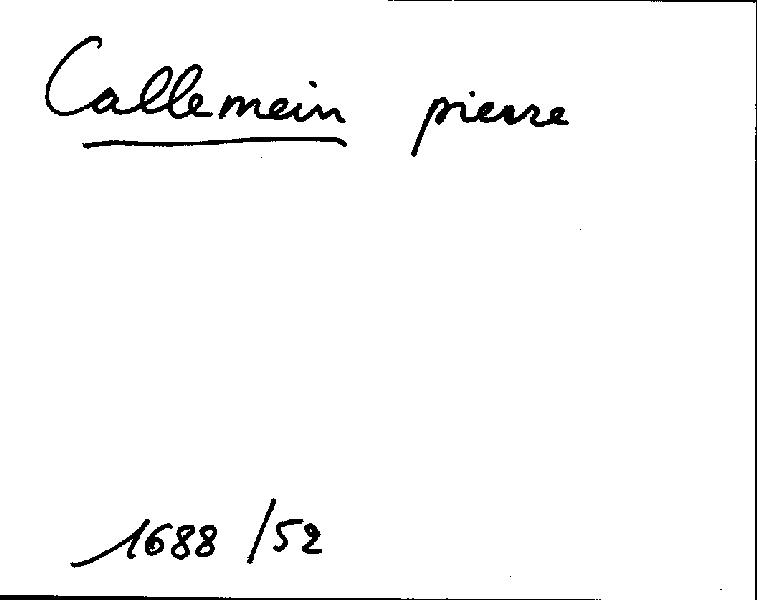 Callemein pierre
1688/52